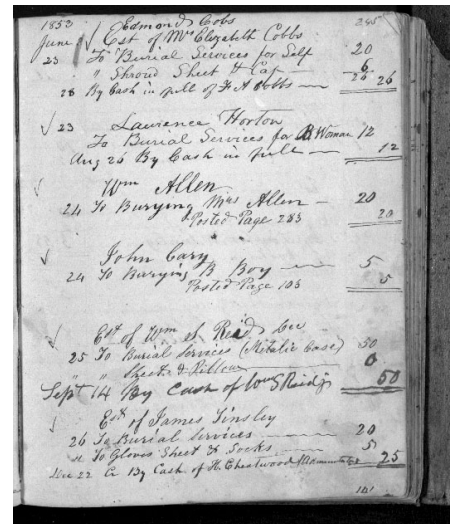 1852 Edmond Cobbs 245
June Est of Mrs Elizabeth Cobbs
23 To Burial Services for Self 20
" Shroud Sheet & Cap 6
28 By Cash in full of Cobbs 26 26
23 Lawrence Horton
To Burial Services for B Woman 12
Aug 26 By Cash in full 12
Wm Allen
24 To Burying Mrs Allen 20
Posted Page 283 20
John Cary
24 To Burying B Boy 5
Posted Page 103 5
Est of Wm S Reid Dec
25 To Burial Services (Metalic Case) 50
" " Sheet & Pillow 0
Sept 14 By Cash of Wm S Reid Jr 50
Est of James Tinsley
26 To Burial Services 20
" To Gloves Sheet & Socks 5
22 Cr By Cash of H. 25
141